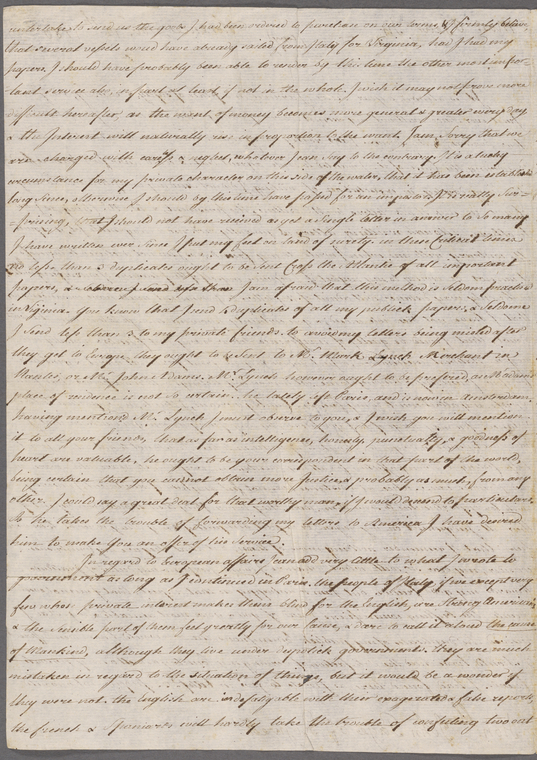 undertakes to send us the goods I had been ordered to purchase on our terms, & I firmly believe
that several vessels would have already sailed from Italy for Virginia, had I had my
papers. I should have probably been able to render by this time the other most impor-
tant service also, in part at least, if not in the whole. I wish it may not prove more
difficult hereafter, as the want of money becomes more general & greater every day
& the Interest will naturally rise in proportion to the want. I am sorry that we
are charged with careless & neglect, whatever I can say to the contrary. It is a lucky
circumstance for my private character on this side of the water, that it has been established
long since, otherwise I should by this time have passed for an impostor. It is really Sur-
-prising, that I should not have received as yet a Single letter in answer to so many
I have written ever since I put my feet on land of surety. in these Critical times
no less than 3 duplicates ought to be sent Cross the Atlantic of all important
papers, & I am afraid that this method is seldom practised
in Virginia. You know that I send 4 duplicates of all my publick papers, & seldom
I send less than 3 to my private friends. to avoid my letters being misled after
they get to Europe they ought to be sent to Mr. Mark Lynch Merchant in
Nantes, or Mr. John Adams. Mr. Lynch however ought to be prefered, as Mr. Adams's
place of residence is not so certain. he lately left Paris, and is now in Amsterdam.
having mentioned Mr. Lynch I must observe to you, & I wish you will mention
it to all your friends, that as far as intelligence, honesty, punctuality, & goodness of
heart are valuable, he ought to be your correspondent in that part of the world,
being certain that you cannot obtain more Justice, & probably as much, from any
other. I could say a great deal for that worthy man, if I would descend to particulars.
As he takes the trouble of forwarding my letters to America I have desired
him to make you an offer of his Services.
In regard to European affairs I can add very little to what I wrote to
government as long as I continued in Paris. the people of Italy, if we except very
few whose private interest makes them blind for the English, are Strong Americans,
& the sensible part of them feel greatly for our Cause, & dare to call it aloud the cause
of Mankind, although they live under despotick governments. they are much
mistaken in regard to the situation of things, but it would be a wonder if
they were not. the English are indefatigable with their exagerated & false reports,
the french & Spaniards will hardly take the trouble of confuting two out